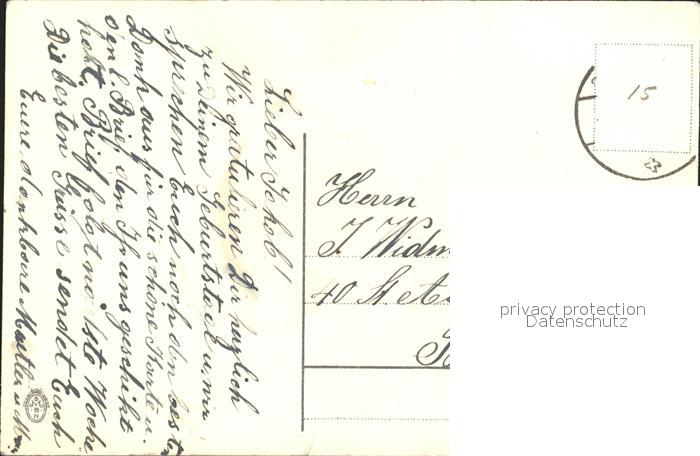 Lieber Jakob!
Wir gratuliren Dir herzlich
zu Deinem Geburtstag u. wir
sprechen Euch noch den besten
Dank aus für die schöne Karte u.
den l. Brief, den Ihr uns geschikt
habt. Brief folgt nächste Woche
Die besten Grüsse sendet Euch
Eure dankbare Mutter u.
Herrn
J. Widm
40 St.
15
privacy protection
Datenschutz